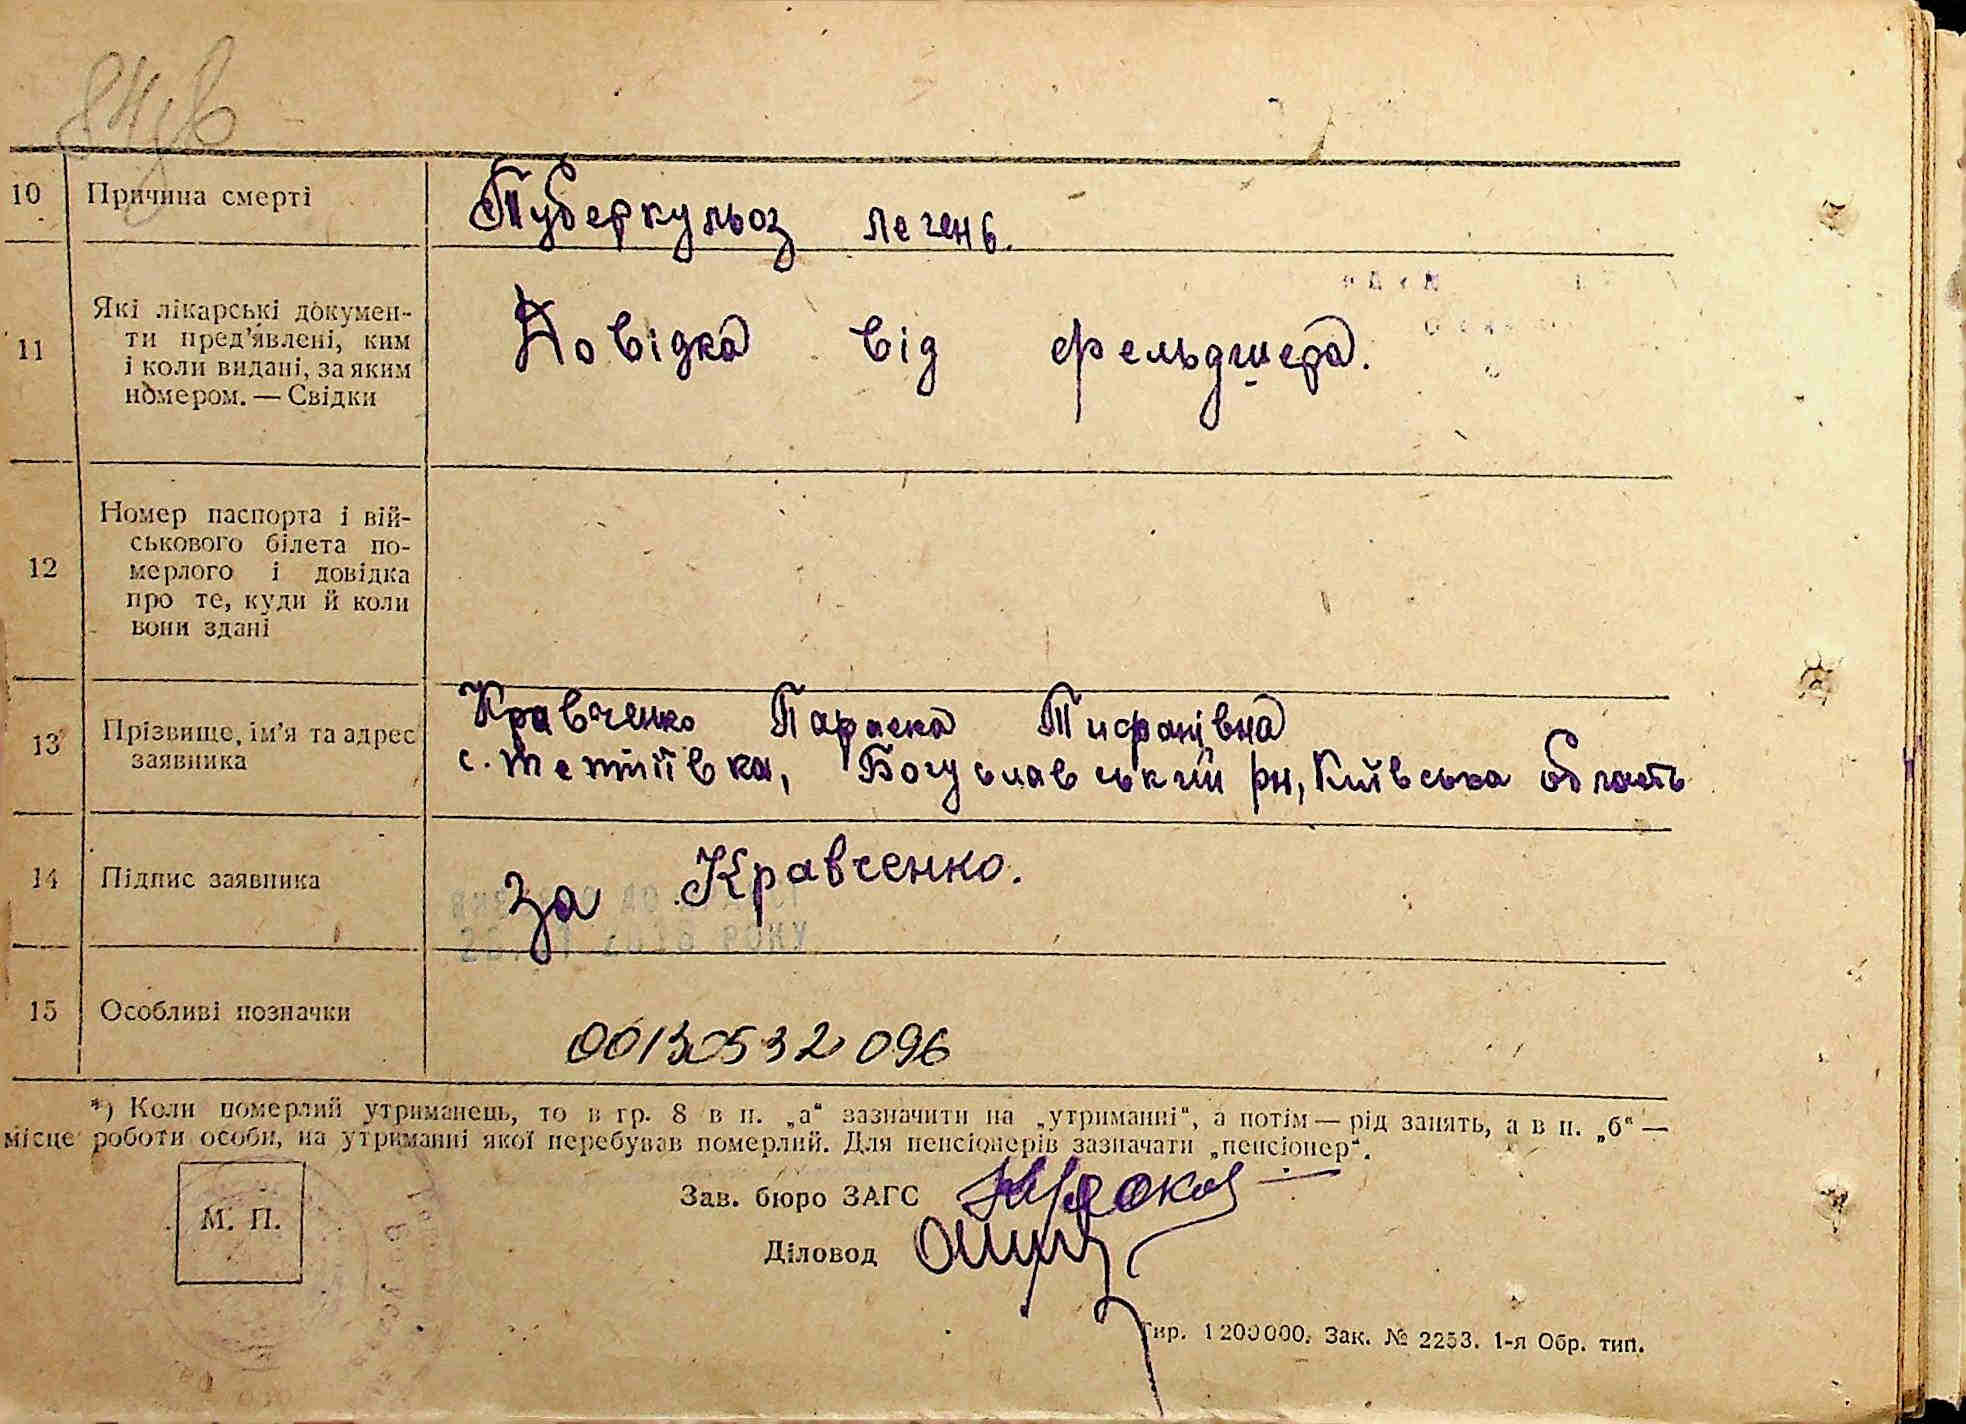 10 Причина смерті Туберкульоз легень.
11 Які лікарські докумен-
ти пред'явлені, ким
і коли видані, за яким
номером. — Свідки
Довідка від фельдшера.
12 Номер паспорта і вій-
ськового білета по-
мерлого і довідка
про те, куди й коли
вони здані
13 Прізвище, ім'я та адрес
заявника
Кравченко Параска Тифанівна
с. Тептіївка, Богуславський рн, Київська область
14 Підпис заявника за Кравченко.
15 Особливі позначки 00130532096
*) Коли померлий утриманець, то в гр. 8 в п. „а“ зазначити на „утриманні“, а потім — рід занять, а в п. „б“ —
місце роботи особи, на утриманні якої перебував померлий. Для пенсіонерів зазначати „пенсіонер“.
Зав. бюро ЗАГС
М. П.
Діловод
Тир. 1200000. Зак. № 2253. 1-я Обр. тип.